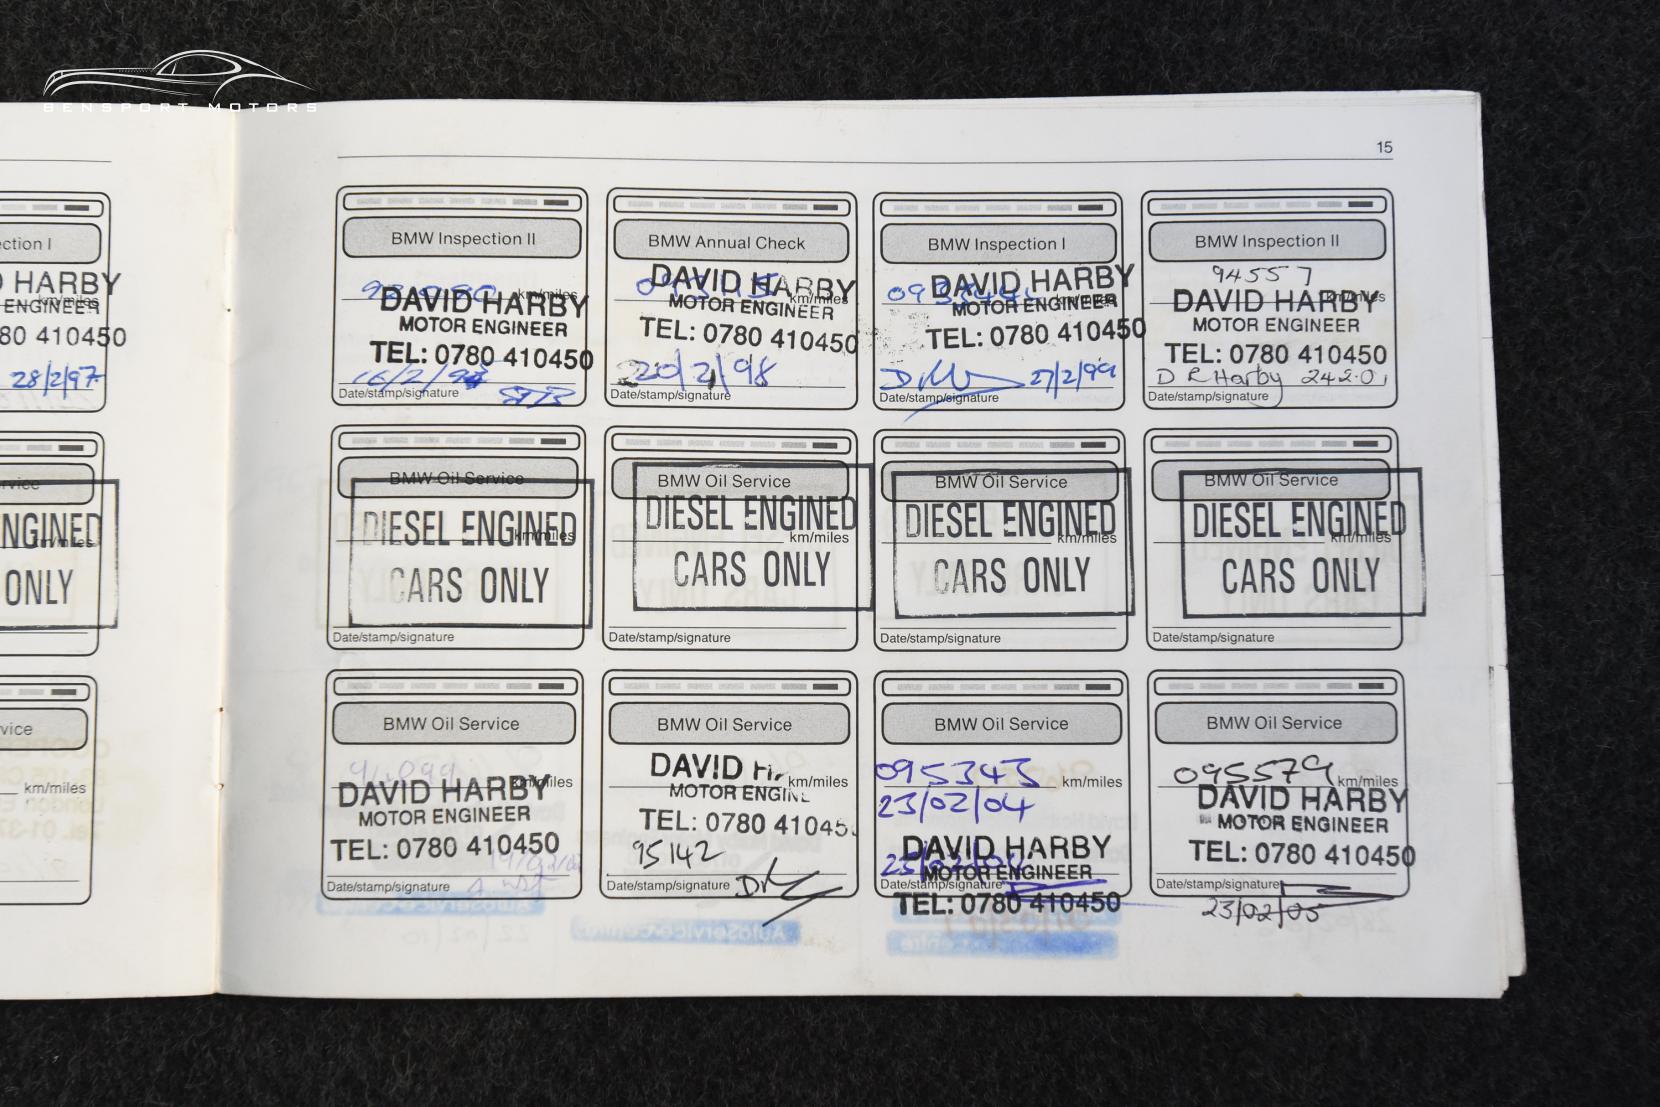 BENSPORT MOTORS
15
ection I
D HARBY
ENGINEER
km/miles
80 410450
28/2/97
BMW Inspection II
km/miles
DAVID HARBY
MOTOR ENGINEER
TEL: 0780 410450
Date/stamp/signature
BMW Annual Check
DAVID HARBY
km/miles
MOTOR ENGINEER
TEL: 0780 410450
20/2/98
Date/stamp/signature
BMW Inspection I
DAVID HARBY
km/miles
MOTOR ENGINEER
TEL: 0780 410450
27/2/99
Date/stamp/signature
BMW Inspection II
94557
km/miles
DAVID HARBY
MOTOR ENGINEER
TEL: 0780 410450
D R Harby 24.2.0
Date/stamp/signature
rvice
ENGINED
km/miles
ONLY
BMW Oil Service
DIESEL ENGINED
km/miles
CARS ONLY
Date/stamp/signature
BMW Oil Service
DIESEL ENGINED
km/miles
CARS ONLY
Date/stamp/signature
BMW Oil Service
DIESEL ENGINED
km/miles
CARS ONLY
Date/stamp/signature
BMW Oil Service
DIESEL ENGINED
km/miles
CARS ONLY
Date/stamp/signature
vice
km/miles
BMW Oil Service
km/miles
DAVID HARBY
MOTOR ENGINEER
TEL: 0780 410450
Date/stamp/signature
BMW Oil Service
DAVID H
km/miles
MOTOR ENGIN
TEL: 0780 41045
95142
Date/stamp/signature
BMW Oil Service
095343 km/miles
23/02/04
DAVID HARBY
MOTOR ENGINEER
Date/stamp/signature
TEL: 0780 410450
BMW Oil Service
095579 km/miles
DAVID HARBY
MOTOR ENGINEER
TEL: 0780 410450
Date/stamp/signature
23/02/05